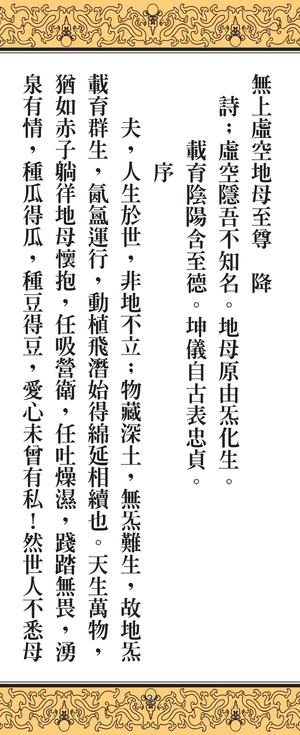 無上虛空地母至尊　降
詩；虛空隱吾不知名。地母原由炁化生。
載育陰陽含至德。坤儀自古表忠貞。
序
夫，人生於世，非地不立；物藏深土，無炁難生，故地炁
載育群生，氤氳運行，動植飛潛始得綿延相續也。天生萬物，
猶如赤子躺徉地母懷抱，任吸營衛，任吐燥濕，踐踏無畏，湧
泉有情，種瓜得瓜，種豆得豆，愛心未曾有私！然世人不悉母